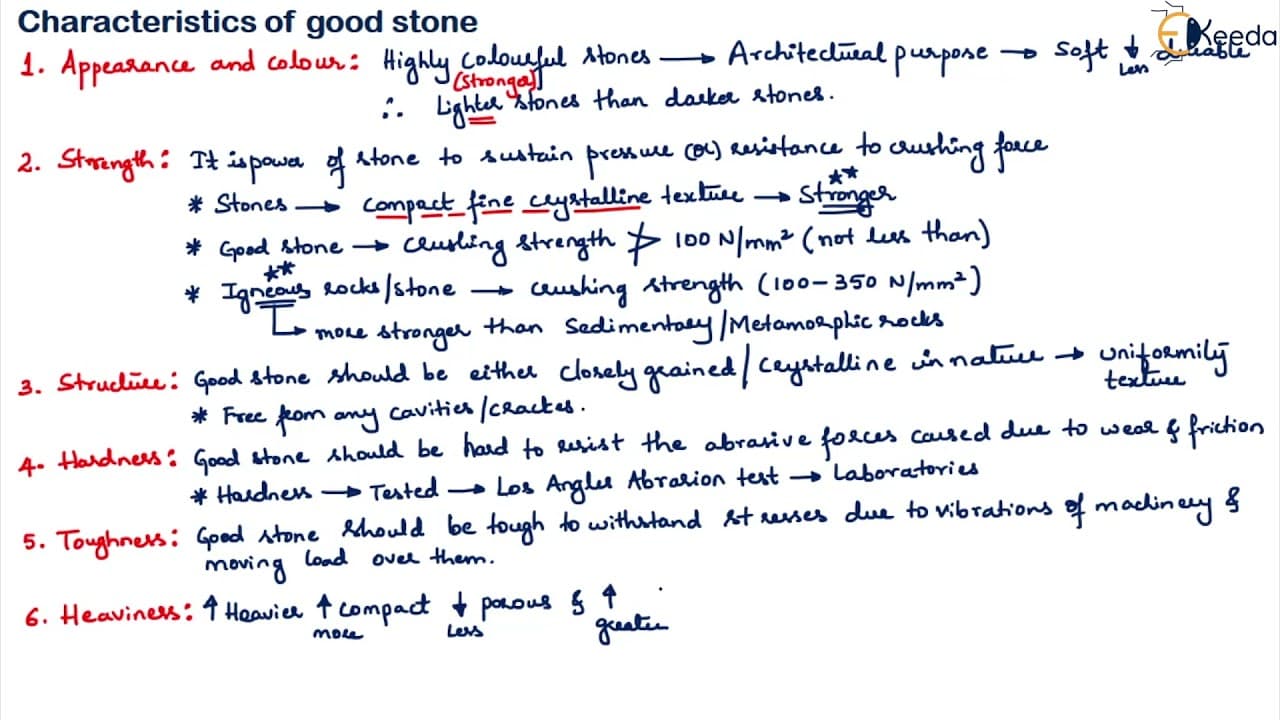 Characteristics of good stone
EKeeda
1. Appearance and colour: Highly colourful stones → Architectural purpose → Soft ↓
Less
(Stronger)
∴ Lighter stones than darker stones.
2. Strength: It is power of stone to sustain pressure (or) resistance to crushing force
* Stones → compact fine crystalline texture → Stronger **
* Good stone → crushing strength ≯ 100 N/mm² (not less than)
* Igneous ** rocks/stone → crushing strength (100-350 N/mm²)
↳ more stronger than Sedimentary/Metamorphic rocks
3. Structure: Good stone should be either closely grained/crystalline in nature → uniformily
texture
* Free from any cavities/crackes.
4. Hardness: Good stone should be hard to resist the abrasive forces caused due to wear & friction
* Hardness → Tested → Los Angles Abrasion test → Laboratories
5. Toughness: Good stone should be tough to withstand stresses due to vibrations of machinery &
moving load over them.
6. Heaviness: ↑ Heavier ↑ compact ↓ porous & ↑
more Less greater